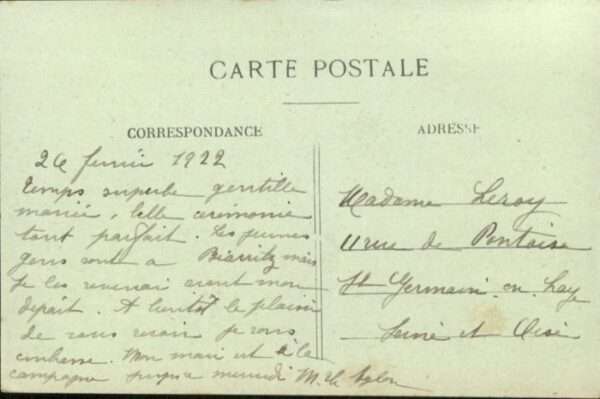 CARTE POSTALE
CORRESPONDANCE
26 février 1922
temps superbe gentille
mariée, belle cérémonie
tout parfait. Les jeunes
gens sont a Biarritz mais
je les reverrai avant mon
départ. A bientôt le plaisir
de vous revoir je vous
embrasse. Mon mari est à la
campagne jusqu'a mercredi M. de
ADRESSE
Madame Leroy
11 rue de Pontoise
St Germain en Laye
Seine et Oise